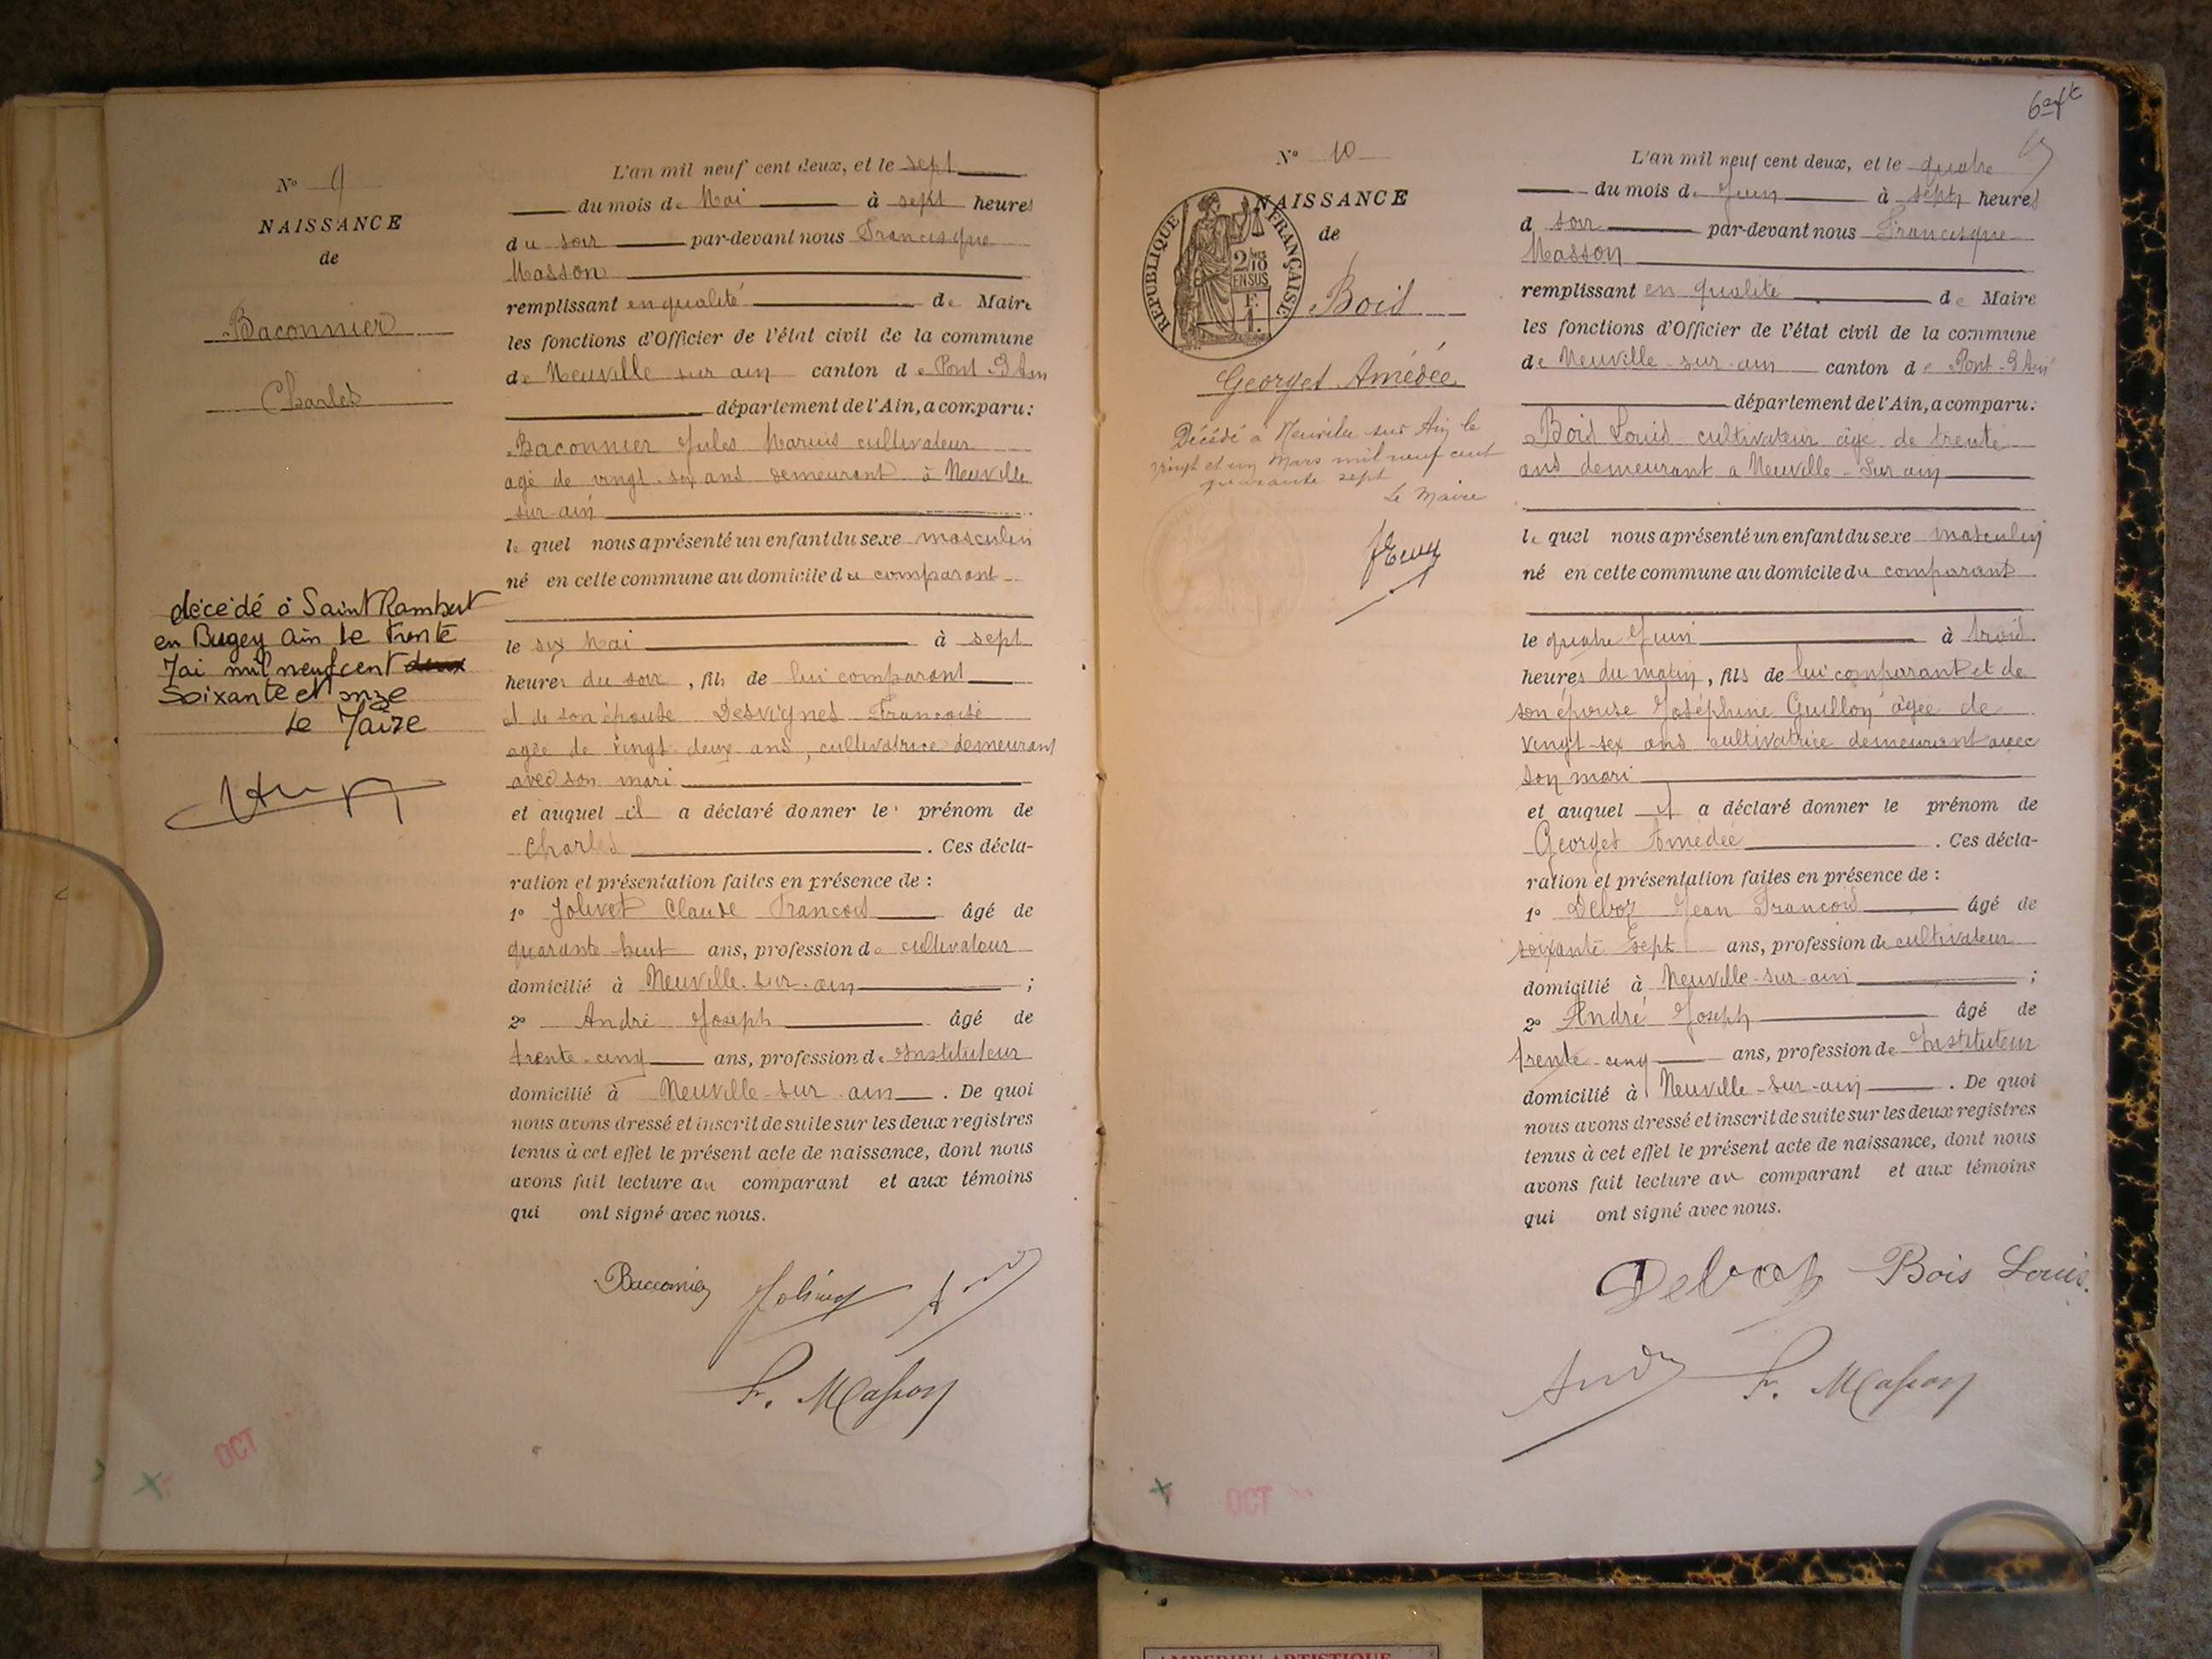 N° 9
NAISSANCE
de
Baconnier
Charles
décédé à Saint Rambert
en Bugey Ain le trente
Mai mil neuf cent deux
soixante et onze
Le Maire
L'an mil neuf cent deux, et le sept
du mois de Mai à sept heures
du soir par-devant nous Francisque
Masson
remplissant en qualité de Maire
les fonctions d'Officier de l'état civil de la commune
de Neuville sur ain canton de Pont-d'Ain
département de l'Ain, a comparu:
Baconnier Jules Marius cultivateur
agé de vingt-six ans demeurant à Neuville
sur-ain
lequel nous a présenté un enfant du sexe masculin
né en cette commune au domicile du comparant
le six Mai à sept
heures du soir, fils de lui comparant
et de son épouse Desvignes Francoise
agée de vingt deux ans, cultivatrice demeurant
avec son mari
et auquel il a déclaré donner le prénom de
Charles. Ces décla-
ration et présentation faites en présence de :
1° Jolivet Claude Francois âgé de
quarante-huit ans, profession de cultivateur
domicilié à Neuville-sur-ain ;
2° André Joseph âgé de
trente-cinq ans, profession de Instituteur
domicilié à Neuville-sur-ain. De quoi
nous avons dressé et inscrit de suite sur les deux registres
tenus à cet effet le présent acte de naissance, dont nous
avons fait lecture au comparant et aux témoins
qui ont signé avec nous.
Bacconnier Jolivet
F. Masson
OCT
N° 10
NAISSANCE
de
RÉPUBLIQUE FRANÇAISE
2/10
EN SUS
Bois
Georges Amédée
Décédé à Neuville sur Ain le
vingt et un Mars mil neuf cent
quarante sept
Le Maire
L'an mil neuf cent deux, et le quatre
du mois de Juin à sept heures
d soir par-devant nous Francisque
Masson
remplissant en qualité de Maire
les fonctions d'Officier de l'état civil de la commune
de Neuville-sur-ain canton de Pont-d'Ain
département de l'Ain, a comparu:
Bois Louis cultivateur âgé de trente
ans demeurant à Neuville-Sur-ain
lequel nous a présenté un enfant du sexe masculin
né en cette commune au domicile du comparant
le quatre Juin à trois
heures du matin, fils de lui comparant et de
son épouse Joséphine Guillon âgée de
vingt-six ans cultivatrice demeurant avec
son mari
et auquel il a déclaré donner le prénom de
Georges Amédée. Ces décla-
ration et présentation faites en présence de :
1° Deboz Jean Francois âgé de
soixante sept ans, profession de cultivateur
domicilié à Neuville-sur-ain ;
2° André Joseph âgé de
trente-cinq ans, profession de Instituteur
domicilié à Neuville-sur-ain. De quoi
nous avons dressé et inscrit de suite sur les deux registres
tenus à cet effet le présent acte de naissance, dont nous
avons fait lecture au comparant et aux témoins
qui ont signé avec nous.
Deboz Bois Louis.
F. Masson
OCT
AMBERIEU ARTISTIQUE